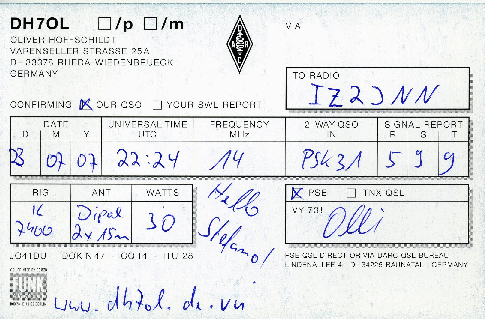 DH7OL □/p □/m
OLIVER HOFFSCHILDT
VIA
VARENSELLER STRASSE 25A
D-33378 RHEDA WIEDENBRUECK
GERMANY
TO RADIO
IZ2JNN
CONFIRMING ☒ OUR QSO □ YOUR SWL REPORT
DATE UNIVERSAL TIME FREQUENCY 2-WAY QSO SIGNAL REPORT
D M Y UTC MHz IN R S T
07 07 22:24 14 PSK31 5 9 9
RIG ANT WATTS
☒ PSE □ TNX QSL
7400 Dipol 30
2x15m
Hello
Stefano!
VY 73!
Olli
JO41DU DOK N47 CQ 14 ITU 28
PSE QSL DIRECT OR VIA DARC QSL BUREAU
LINDENALLEE 4 D-34225 BAUNATAL GERMANY
www.dh7ol.de.vu